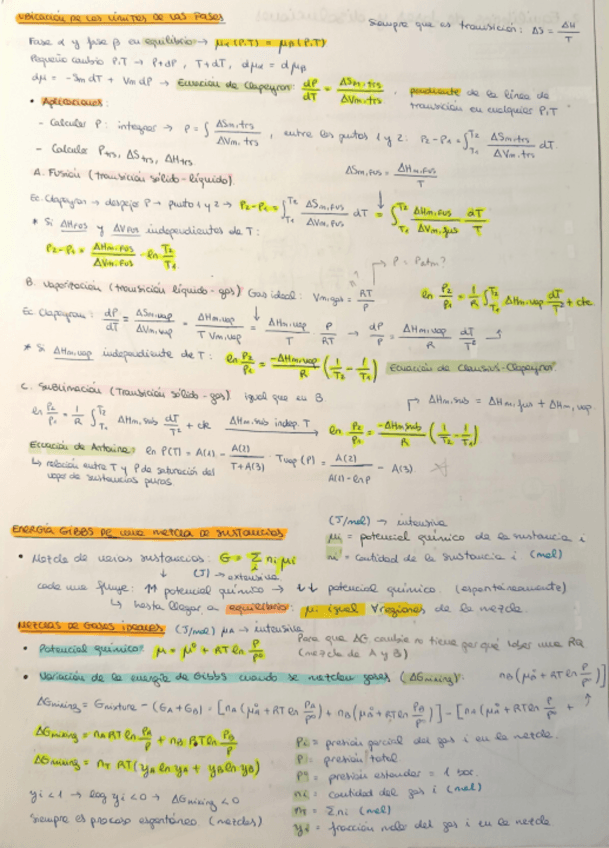 UBICACIÓN DE LOS LÍMITES DE LAS FASES
Siempre que es transición: ΔS = ΔH/T
Fase α y fase β en equilibrio → μα(P,T) = μβ(P,T)
Pequeño cambio P,T → P+dP, T+dT, dμα = dμβ
dμ = -Sm dT + Vm dP → Ecuación de Clapeyron: dP/dT = ΔSm,trs/ΔVm,trs, pendiente de la línea de transición en cualquier P,T
• Aplicaciones:
- Calcular P: integrar → P = ∫ ΔSm,trs/ΔVm,trs, entre los puntos 1 y 2: P2-P1 = ∫T1 T2 ΔSm,trs/ΔVm,trs dT
- Calcular Ptrs, ΔStrs, ΔHtrs
A. Fusión (transición sólido-líquido)
ΔSm,fus = ΔHm,fus/T
Ec. Clapeyron → despejar P → punto 1 y 2 → P2-P1 = ∫T1 T2 ΔSm,fus/ΔVm,fus dT = ∫T1 T2 ΔHm,fus/ΔVm,fus dT/T
* Si ΔHfus y ΔVfus independientes de T:
P2-P1 = ΔHm,fus/ΔVm,fus · ln T2/T1
P = Patm?
B. Vaporización (transición líquido-gas) Gas ideal: Vm,gas = RT/P
ln P2/P1 = 1/R ∫T1 T2 ΔHm,vap dT/T² + cte
Ec Clapeyron: dP/dT = ΔSm,vap/ΔVm,vap = ΔHm,vap/T Vm,vap = ΔHm,vap/T · P/RT → dP/P = ΔHm,vap/R dT/T²
* Si ΔHm,vap independiente de T: ln P2/P1 = -ΔHm,vap/R (1/T2 - 1/T1) Ecuación de Clausius-Clapeyron
C. Sublimación (Transición sólido-gas) igual que en B
ΔHm,sub = ΔHm,fus + ΔHm,vap
ln P2/P1 = 1/R ∫T1 T2 ΔHm,sub dT/T² + cte ΔHm,sub indep. T → ln P2/P1 = -ΔHm,sub/R (1/T2 - 1/T1)
Ecuación de Antoine: ln P(T) = A(1) - A(2)/T+A(3) · Tvap(P) = A(2)/A(1)-lnP - A(3)
↳ relación entre T y P de saturación del
vapor de sustancias puras
ENERGÍA GIBBS DE UNA MEZCLA DE SUSTANCIAS
(J/mol) → intensiva
μi = potencial químico de la sustancia i
• Mezcla de varias sustancias: G = Σi ni μi
ni = cantidad de la sustancia i (mol)
(J) → extensiva
cada una fluye: ↑↑ potencial químico → ↓↓ potencial químico (espontáneamente)
↳ hasta llegar a equilibrio: μi igual ∀regiones de la mezcla.
MEZCLAS DE GASES IDEALES (J/mol) μA → intensiva
• Potencial químico: μ = μ° + RT ln P/P°
Para que ΔG cambie no tiene por qué haber una RQ
(mezcla de A y B)
• Variación de la energía de Gibbs cuando se mezclan gases (ΔGmixing):
nB(μB° + RT ln P/P°)]
ΔGmixing = Gmixture - (GA+GB) = [nA(μA°+RT ln PA/P°) + nB(μB°+RT ln PB/P°)] - [nA(μA°+RT ln P/P°) +
ΔGmixing = nA RT ln PA/P + nB RT ln PB/P
ΔGmixing = nT RT(yA ln yA + yB ln yB)
yi < 1 → log yi < 0 → ΔGmixing < 0
Siempre es proceso espontáneo (mezclas)
Pi = presión parcial del gas i en la mezcla.
P = presión total
P° = presión estándar = 1 bar.
ni = cantidad del gas i (mol)
nT = Σni (mol)
yi = fracción molar del gas i en la mezcla